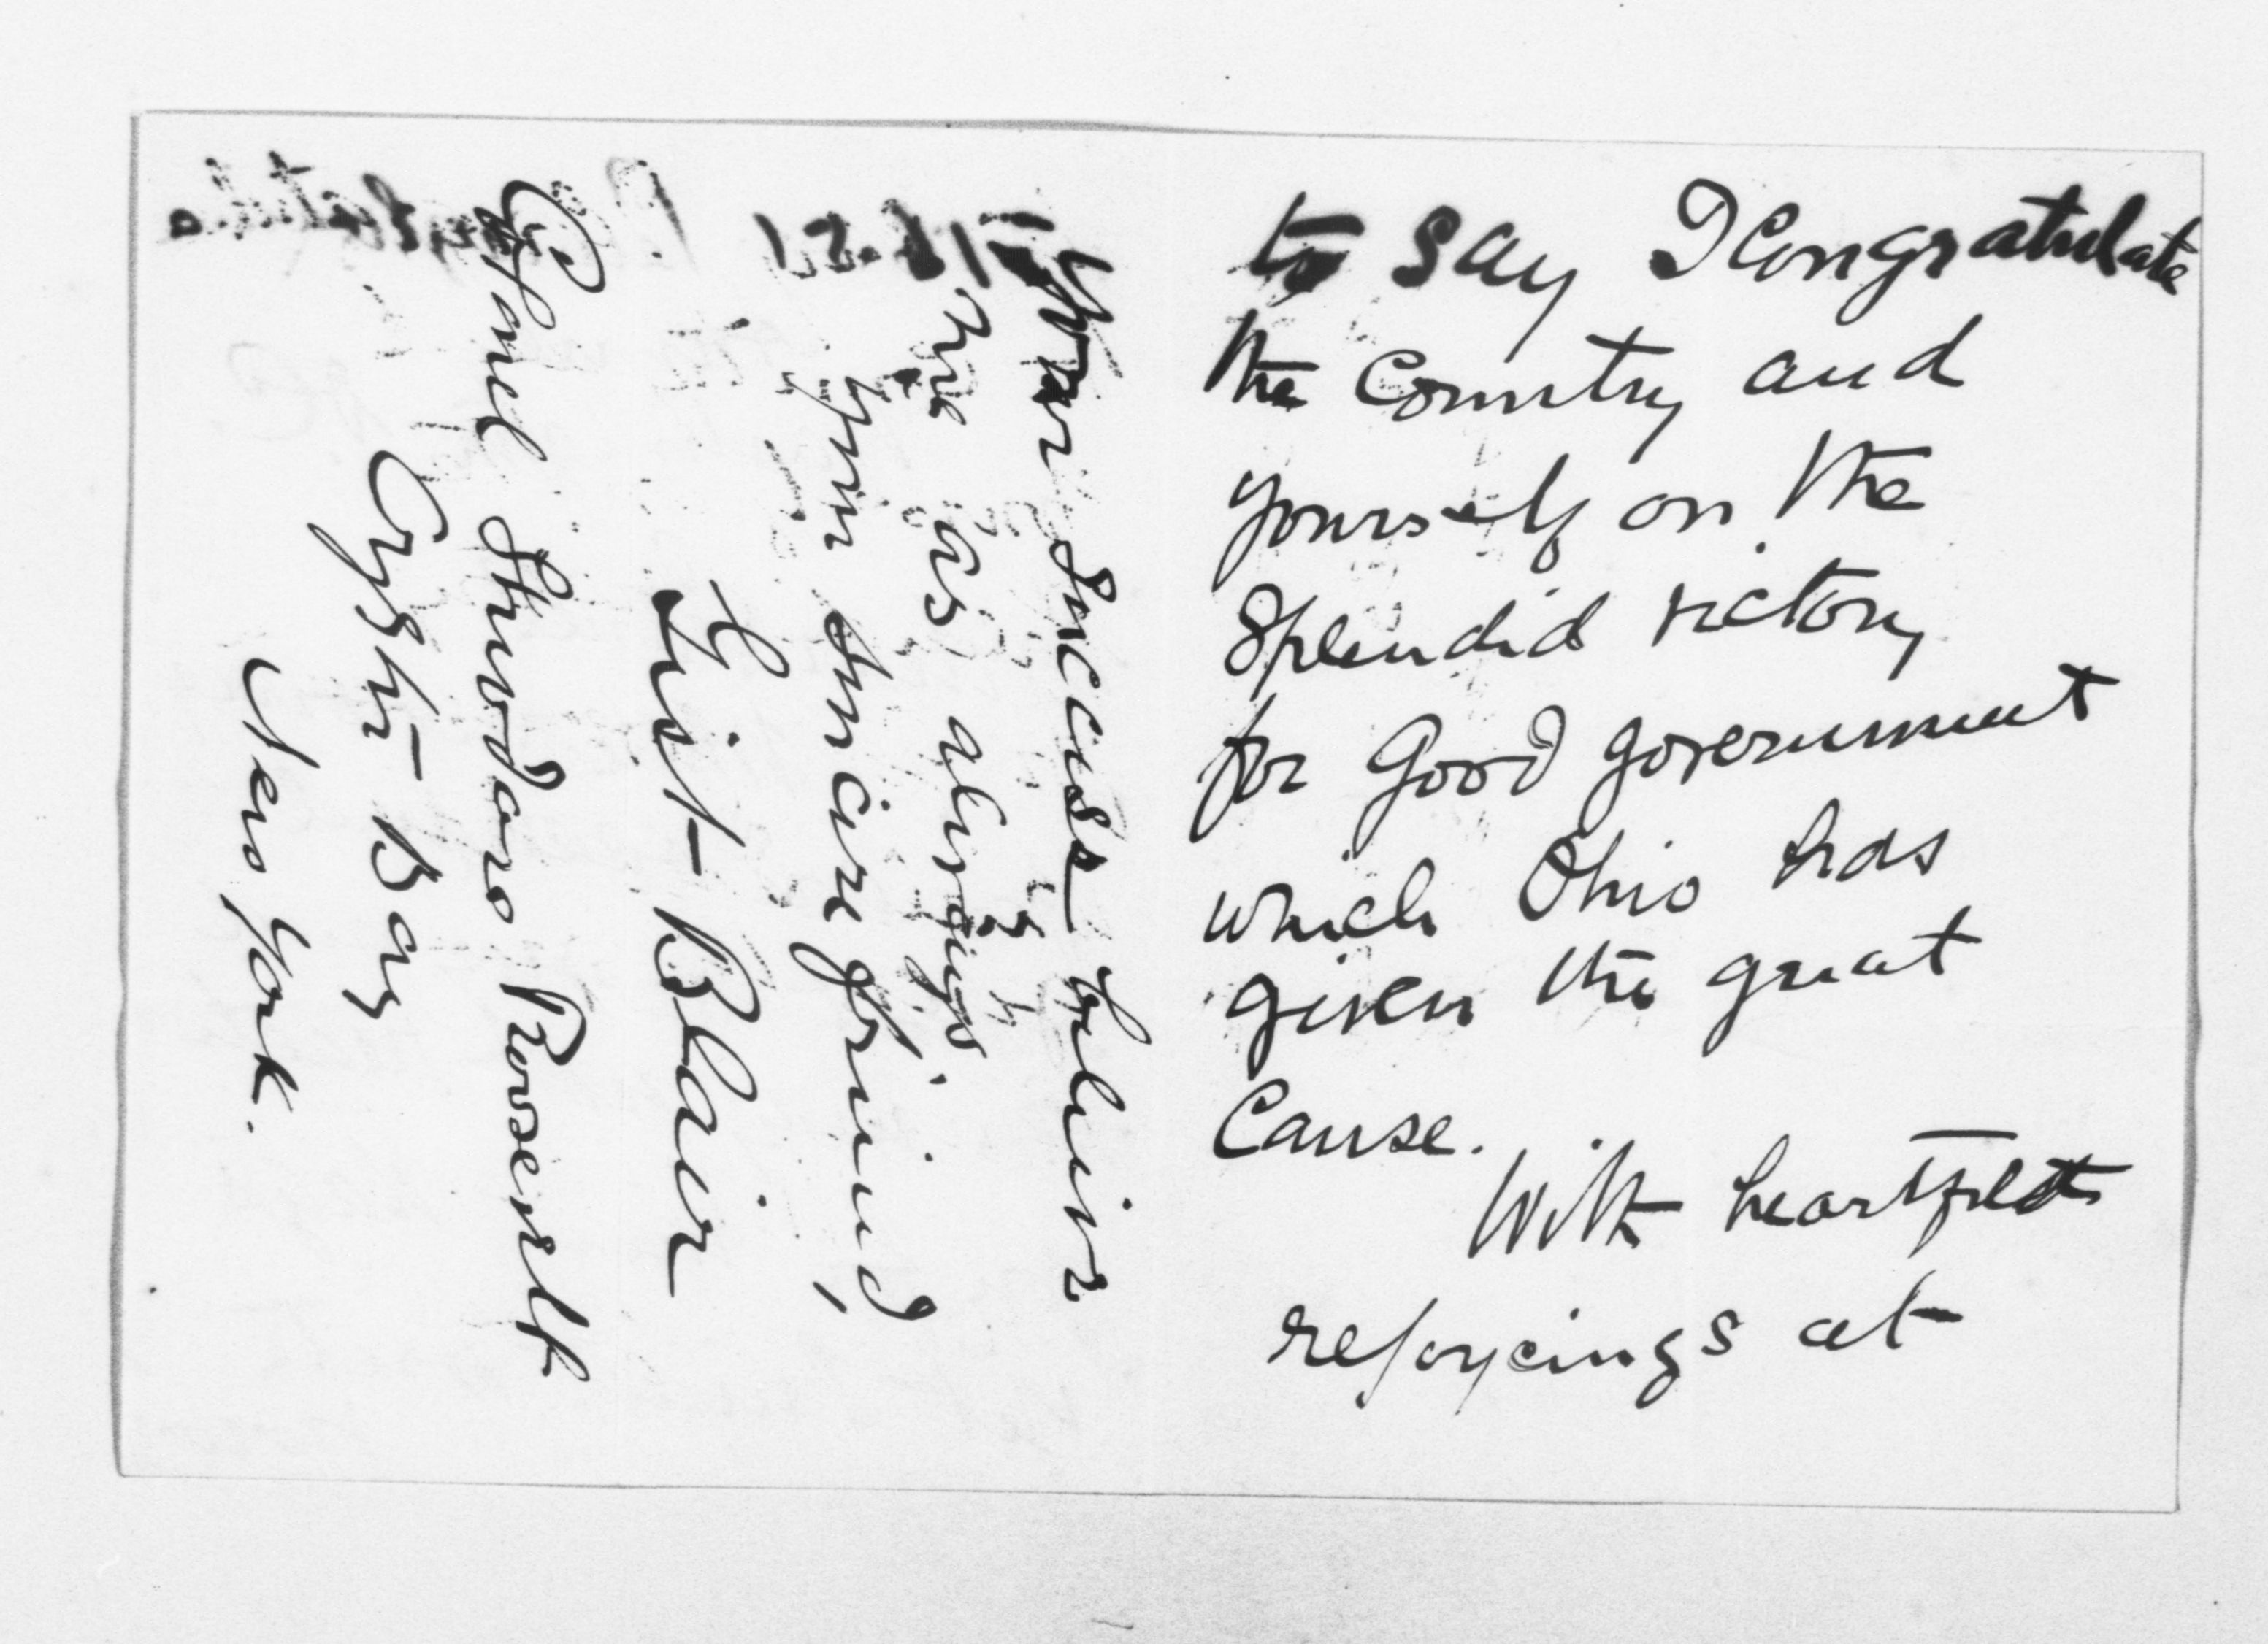 to say I Congratulate
the Country and
yourself on the
Splendid victory
for Good government
which Ohio has
given the great
Cause.
With heartfelt
rejoycings at
your success believe
me as always
your sincere friend,
Gist Blair
Colonel Theodore Roosevelt
Oyster Bay
New York.